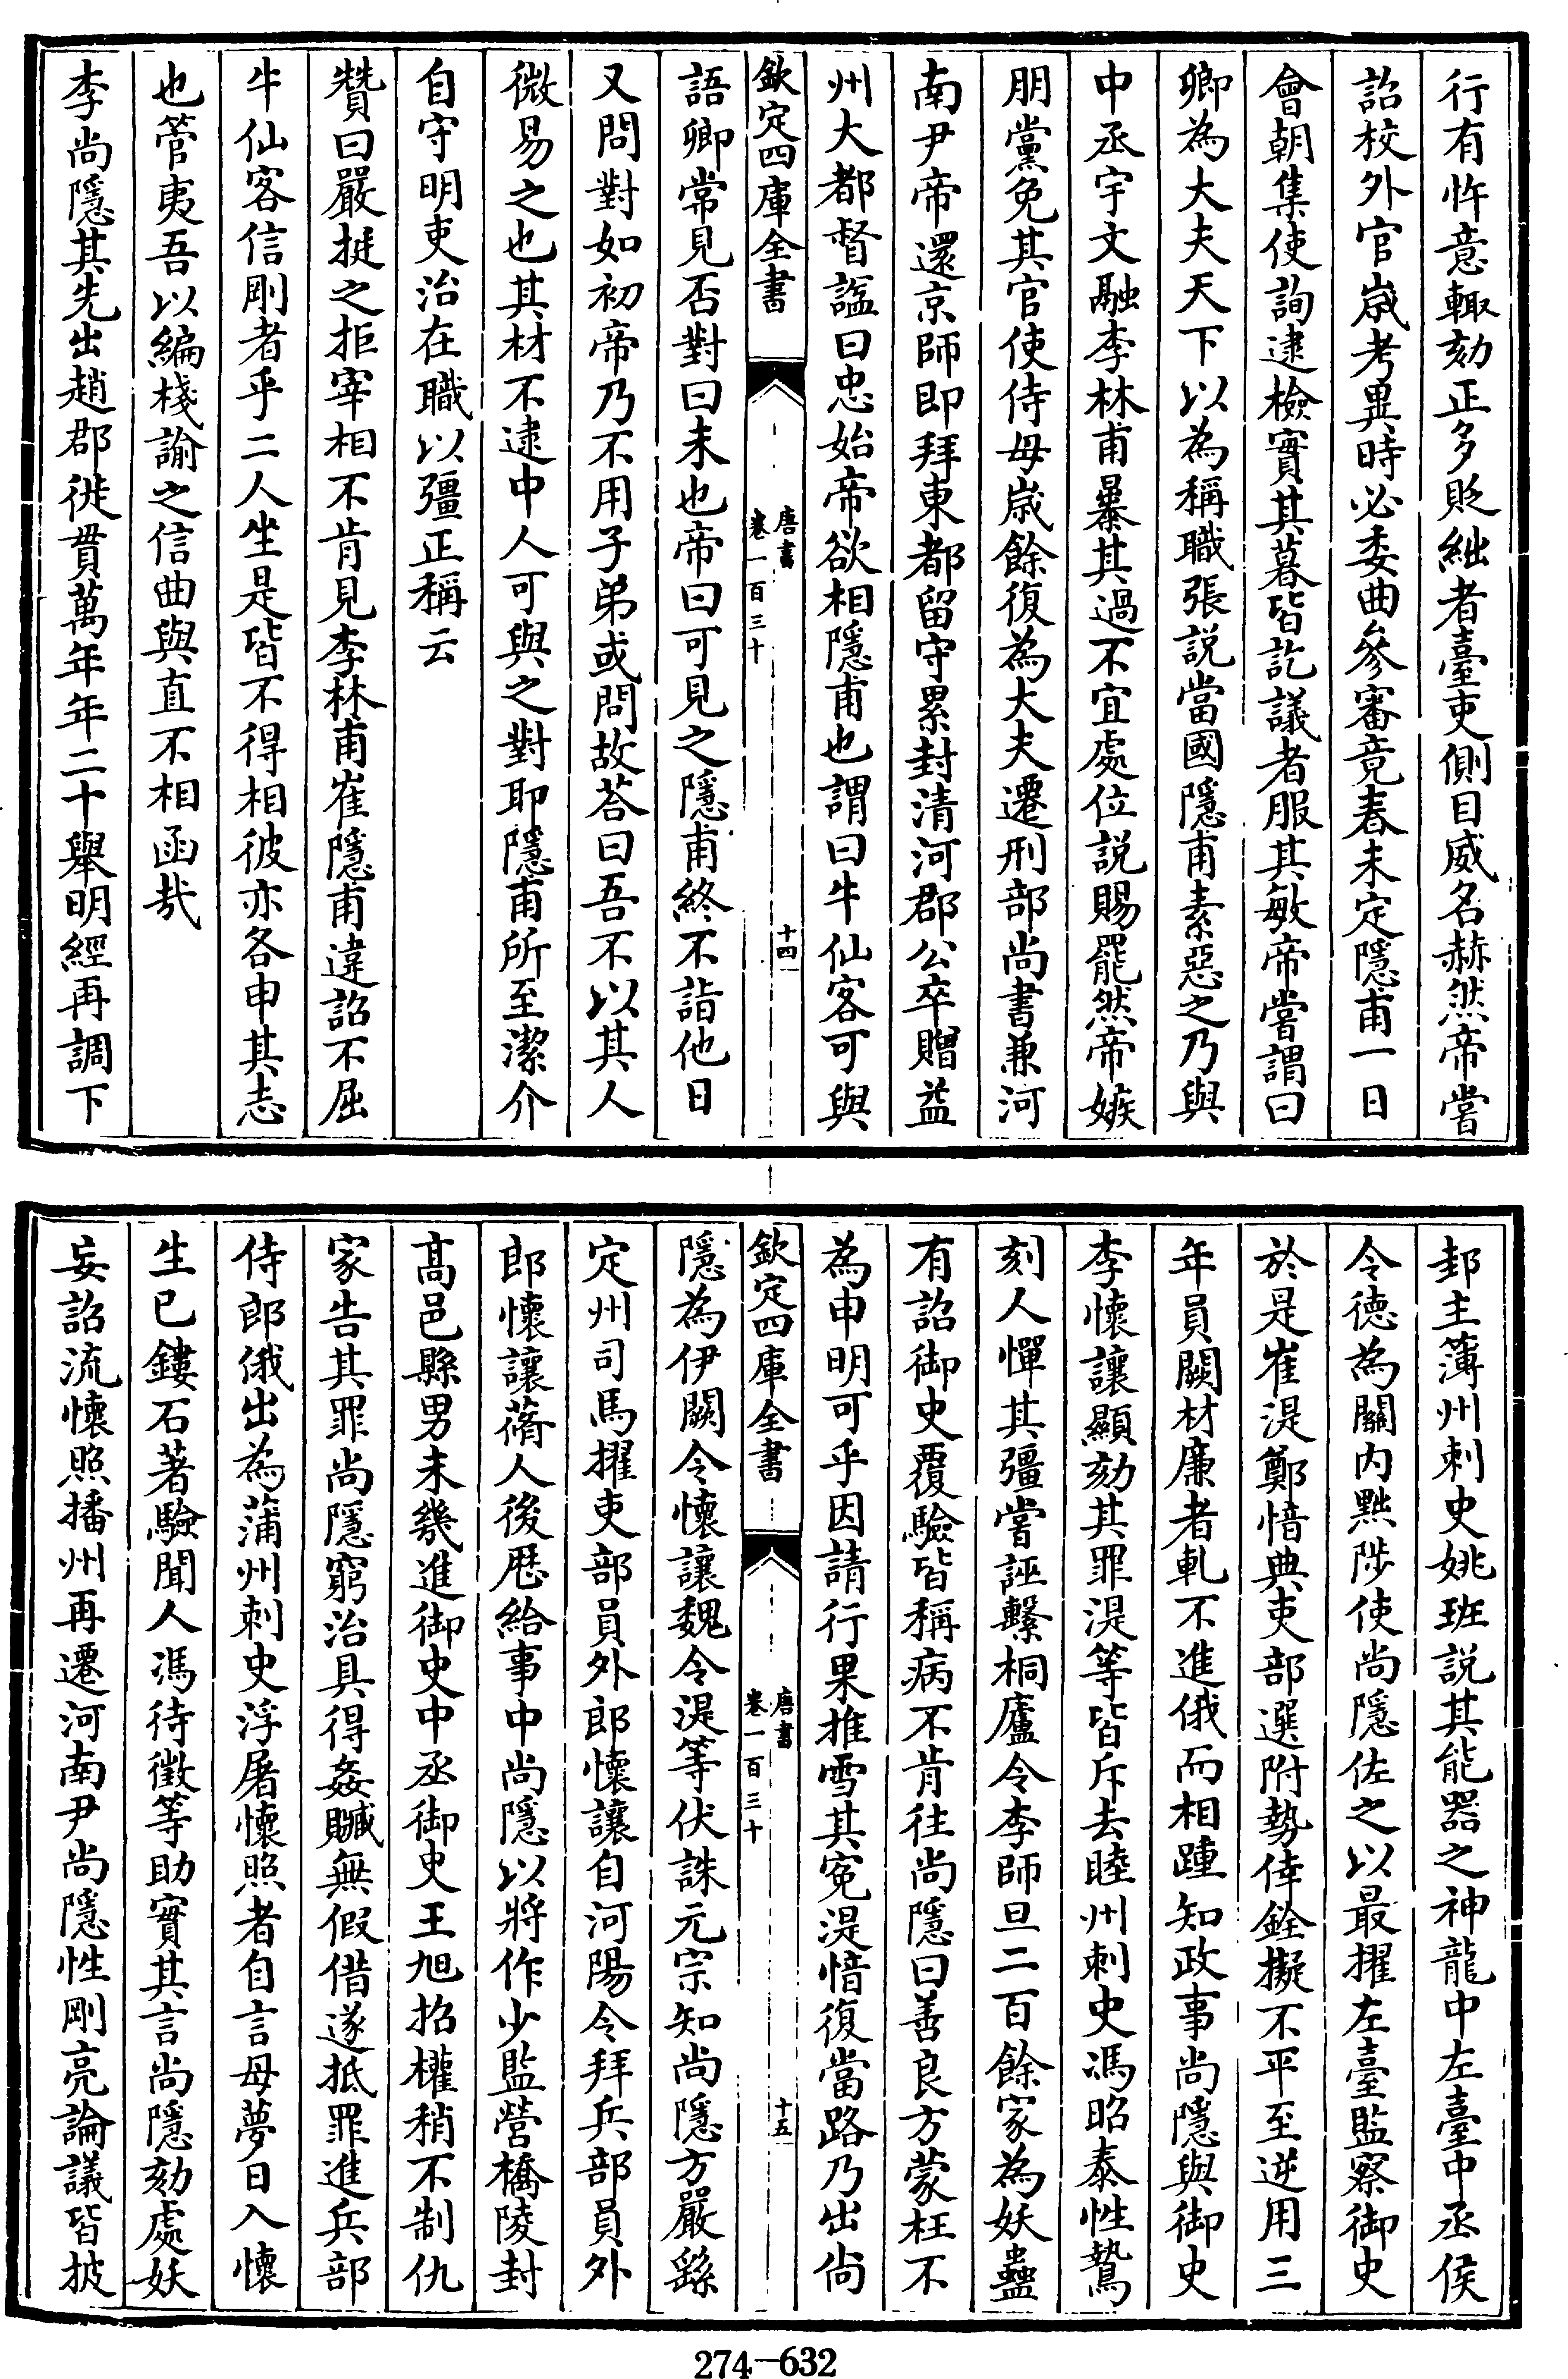 行有忤意輙劾正多貶絀者臺吏側目威名赫然帝嘗
詔校外官歳考異時必委曲參審竟春未定隱甫一日
會朝集使詢逮檢實其暮皆訖議者服其敏帝嘗謂曰
卿為大夫天下以為稱職張説當國隱甫素惡之乃與
中丞宇文融李林甫暴其過不宜處位説賜罷然帝嫉
朋黨免其官使侍母歳餘復為大夫遷刑部尚書兼河
南尹帝還京師即拜東都留守累封清河郡公卒贈益
州大都督諡曰忠始帝欲相隱甫也謂曰牛仙客可與
欽定四庫全書
唐書
卷一百三十
十四
語卿常見否對曰未也帝曰可見之隱甫終不詣他日
又問對如初帝乃不用子弟或問故荅曰吾不以其人
微易之也其材不逮中人可與之對耶隱甫所至潔介
自守明吏治在職以彊正稱云
贊曰嚴挺之拒宰相不肯見李林甫崔隱甫違詔不屈
牛仙客信剛者乎二人坐是皆不得相彼亦各申其志
也管夷吾以編棧諭之信曲與直不相函哉
李尚隱其先出趙郡徙貫萬年年二十舉明經再調下
邽主簿州刺史姚珽説其能器之神龍中左臺中丞侯
令德為關內黜陟使尚隱佐之以最擢左臺監察御史
於是崔湜鄭愔典吏部選附勢倖銓擬不平至逆用三
年員闕材廉者軋不進俄而相踵知政事尚隱與御史
李懷讓顯劾其罪湜等皆斥去睦州刺史馮昭泰性鷙
刻人憚其彊嘗誣繫桐廬令李師旦二百餘家為妖蠱
有詔御史覆驗皆稱病不肯往尚隱曰善良方蒙枉不
為申明可乎因請行果推雪其寃湜愔復當路乃出尚
欽定四庫全書
唐書
卷一百三十
十五
隱為伊闕令懷讓魏令湜等伏誅元宗知尚隱方嚴繇
定州司馬擢吏部員外郎懷讓自河陽令拜兵部員外
郎懷讓蓨人後歴給事中尚隱以將作少監營橋陵封
髙邑縣男未幾進御史中丞御史王旭招權稍不制仇
家告其罪尚隱窮治具得姦贓無假借遂抵罪進兵部
侍郎俄出為蒲州刺史浮屠懷照者自言母夢日入懷
生已鏤石著驗聞人馮待徵等助實其言尚隱劾處妖
妄詔流懷照播州再遷河南尹尚隱性剛亮論議皆披
274-632